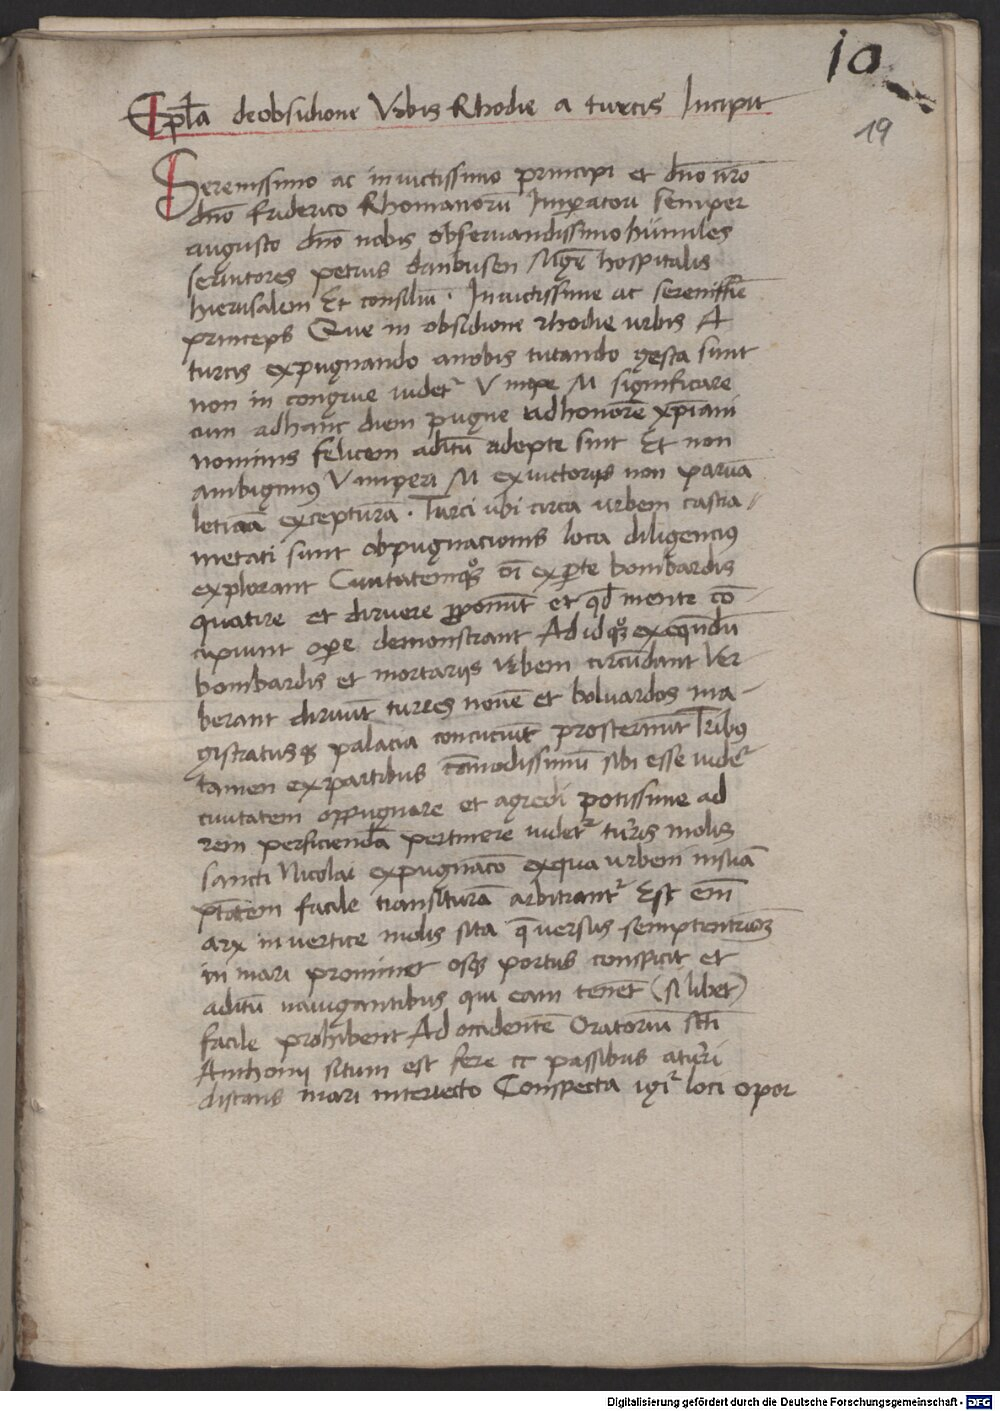 10
19
Ep̄la de obsidione Vrbis Rhodie a turcis Incipit
Serenissimo ac inuictissimo principi et dn̄o nr̄o
dn̄o Friderico Rhomanorū Imꝑatori semper
augusto dn̄o nobis obseruandissimo humiles
seruitores petrus daubusen Mgr̄ hospitalis
hierusalem Et consiliū . Inuictissime ac sereniss̄ie
princeps Que in obsidione rhodie urbis A
turcis expugnando a nobis tutando gesta sunt
non in congrue uidetr V M significare
cum adhanc diem pugne ad honorē xp̄iani
nominis felicem aditū adepte sint Et non
ambigimus V imperi M ex uictoriis non paruā
leticiā excepturā . Turci ubi circa urbem castra
metati sunt obpugnacionis loca diligencius
explorant Ciuitatemqꝫ oī exꝑte bombardis
quatire et diruere ꝓponūt et qd mente cō
cipiunt oꝑe demonstrant Ad idqꝫ exequēdū
bombardis et mortariis urbem circūdant Ver
berant diruūt turres nouē et boluardos ma
gistratusqꝫ palacia concuciūt prosternūt Tribus
tamen ex partibus cōmodissimū sibi esse uidetr
ciuitatem oppugnare et agredi potissime ad
rem perficiendā pertinere uidetr turris molis
sancti Nicolai expugnacō exqua urbem in suā
ptātem facile transiturā arbitrantr Est em̄
arx in uertice molis sita q̄ uersus semptentrionē
in mari prominet osqꝫ portus conspicit et
aditū nauigantibus qui eam tenet (si libet)
facile prohibent Ad occidentē Oratoriū sct̄i
Anthonii situm est fere cc passibus a turri
distans mari interiecto Conspecta igir loci opor
Digitalisierung gefördert durch die Deutsche Forschungsgemeinschaft - DFG